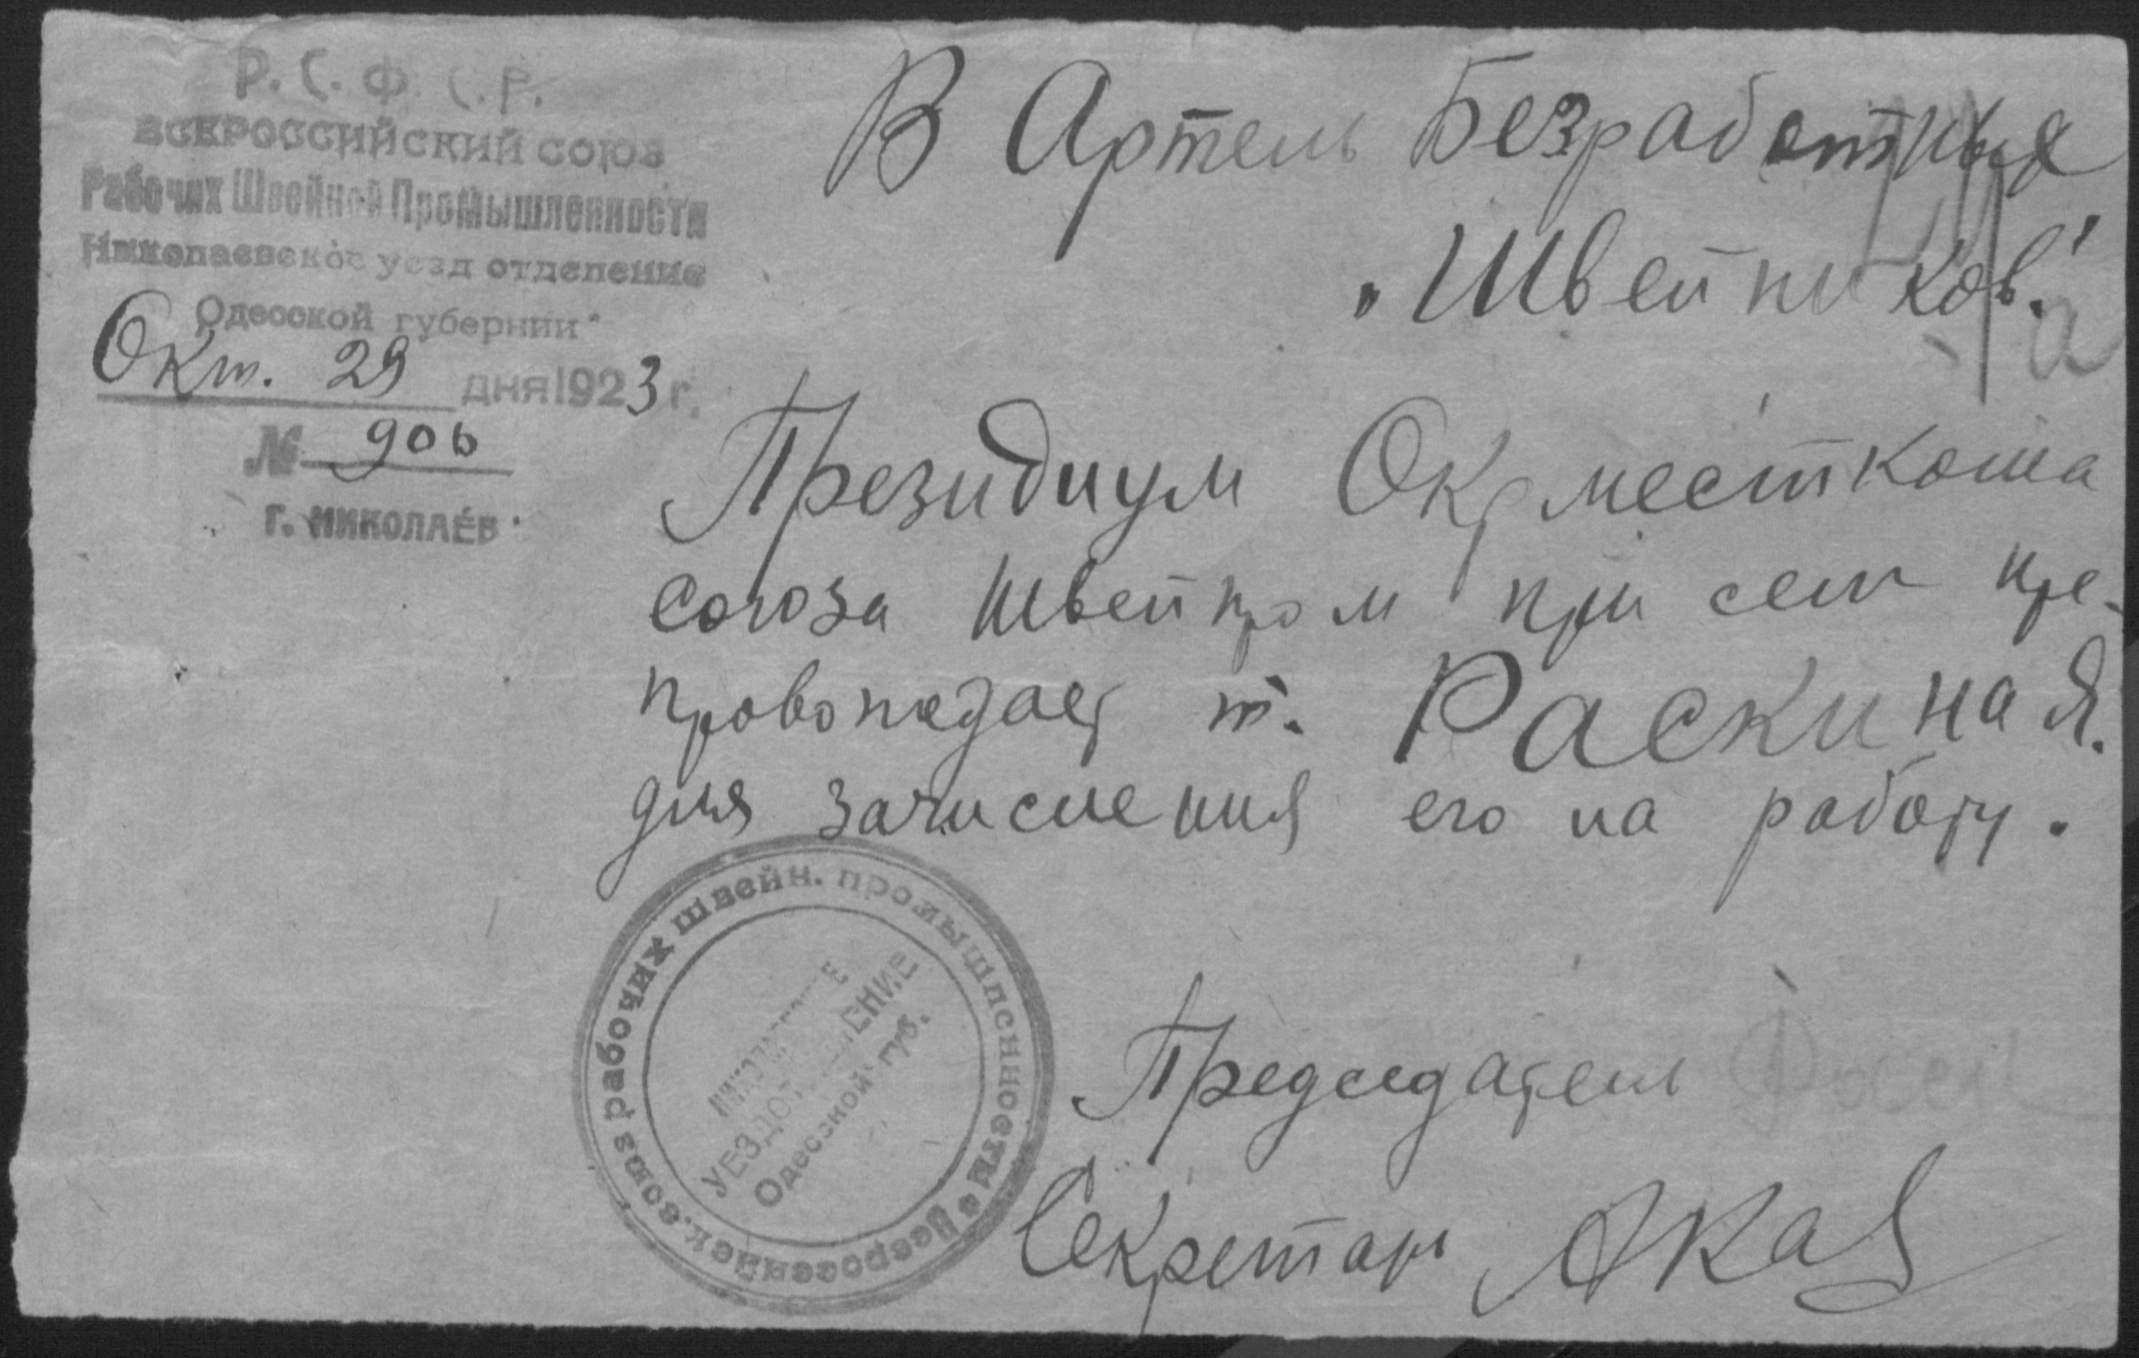 Р. С. Ф. С. Р.
ВСЕРОССИЙСКИЙ СОЮЗ
Рабочих Швейной Промышленности
Николаевское уезд отделение
Одесской губернии
Окт. 29 дня 1923 г.
№ 906
г. НИКОЛАЕВ
В Артель Безработных
„Швейников“
Президиум Окрместкома
союза Швейпром при сем пре-
провождает т. Раскина Я.
для зачисления его на работу.
Председатель
Секретарь
Всероссийск. союз рабочих швейн. промышленности
УЕЗДОТДЕЛЕНИЕ
Одесской губ.